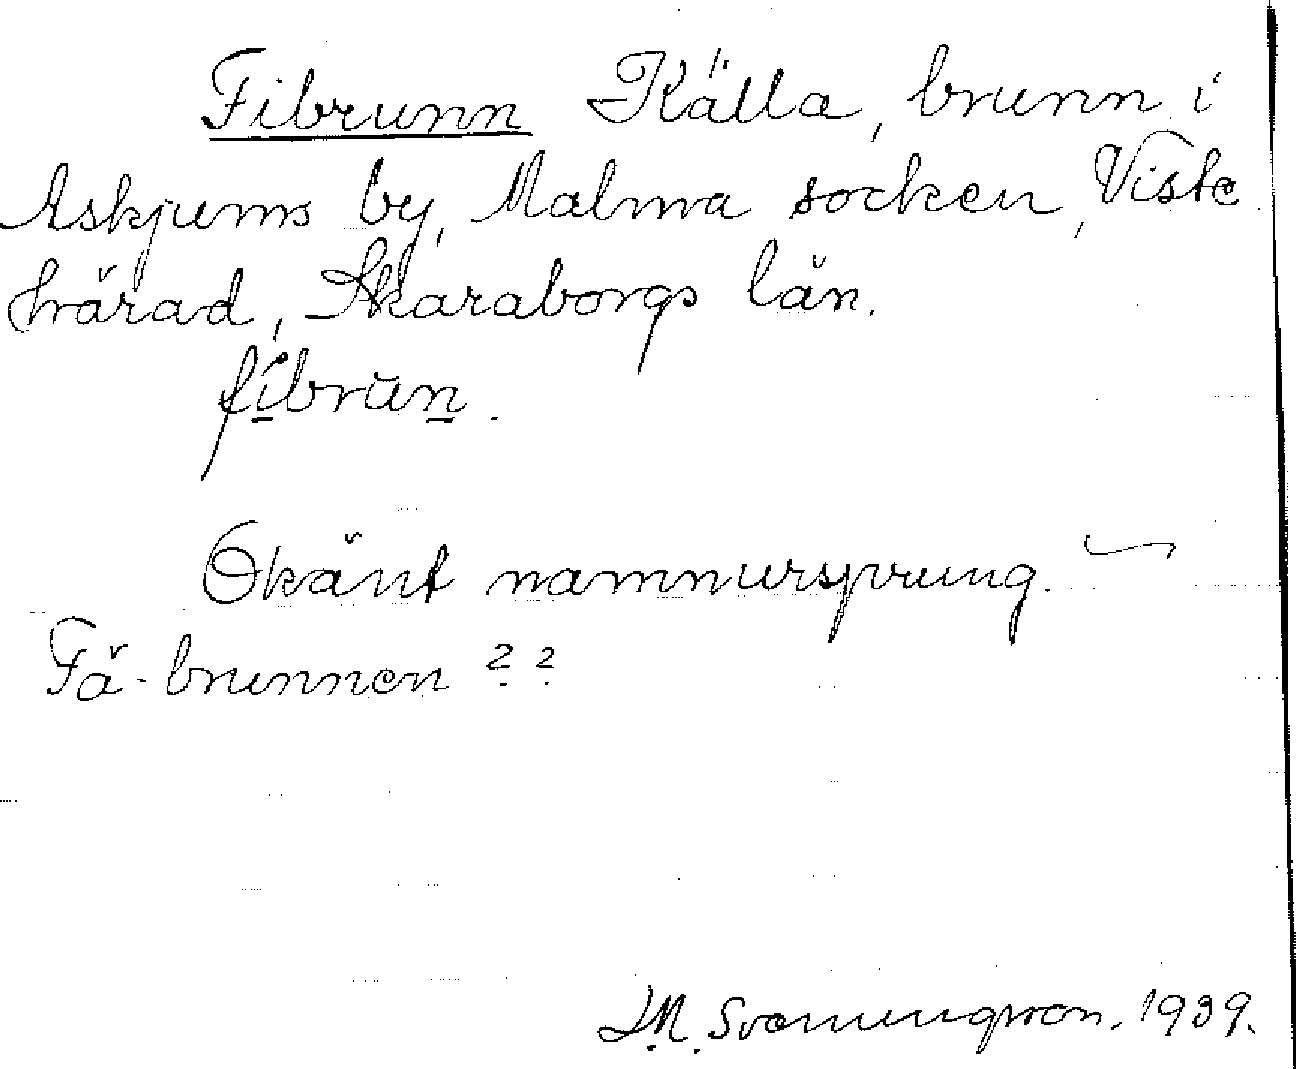 Fibrunn Källa, brunn i
Askjums by, Malma socken, Viste
härad, Skaraborgs län.
fi̱brun̠.
Okänt namnursprung.
Fä-brunnen ??
1939.